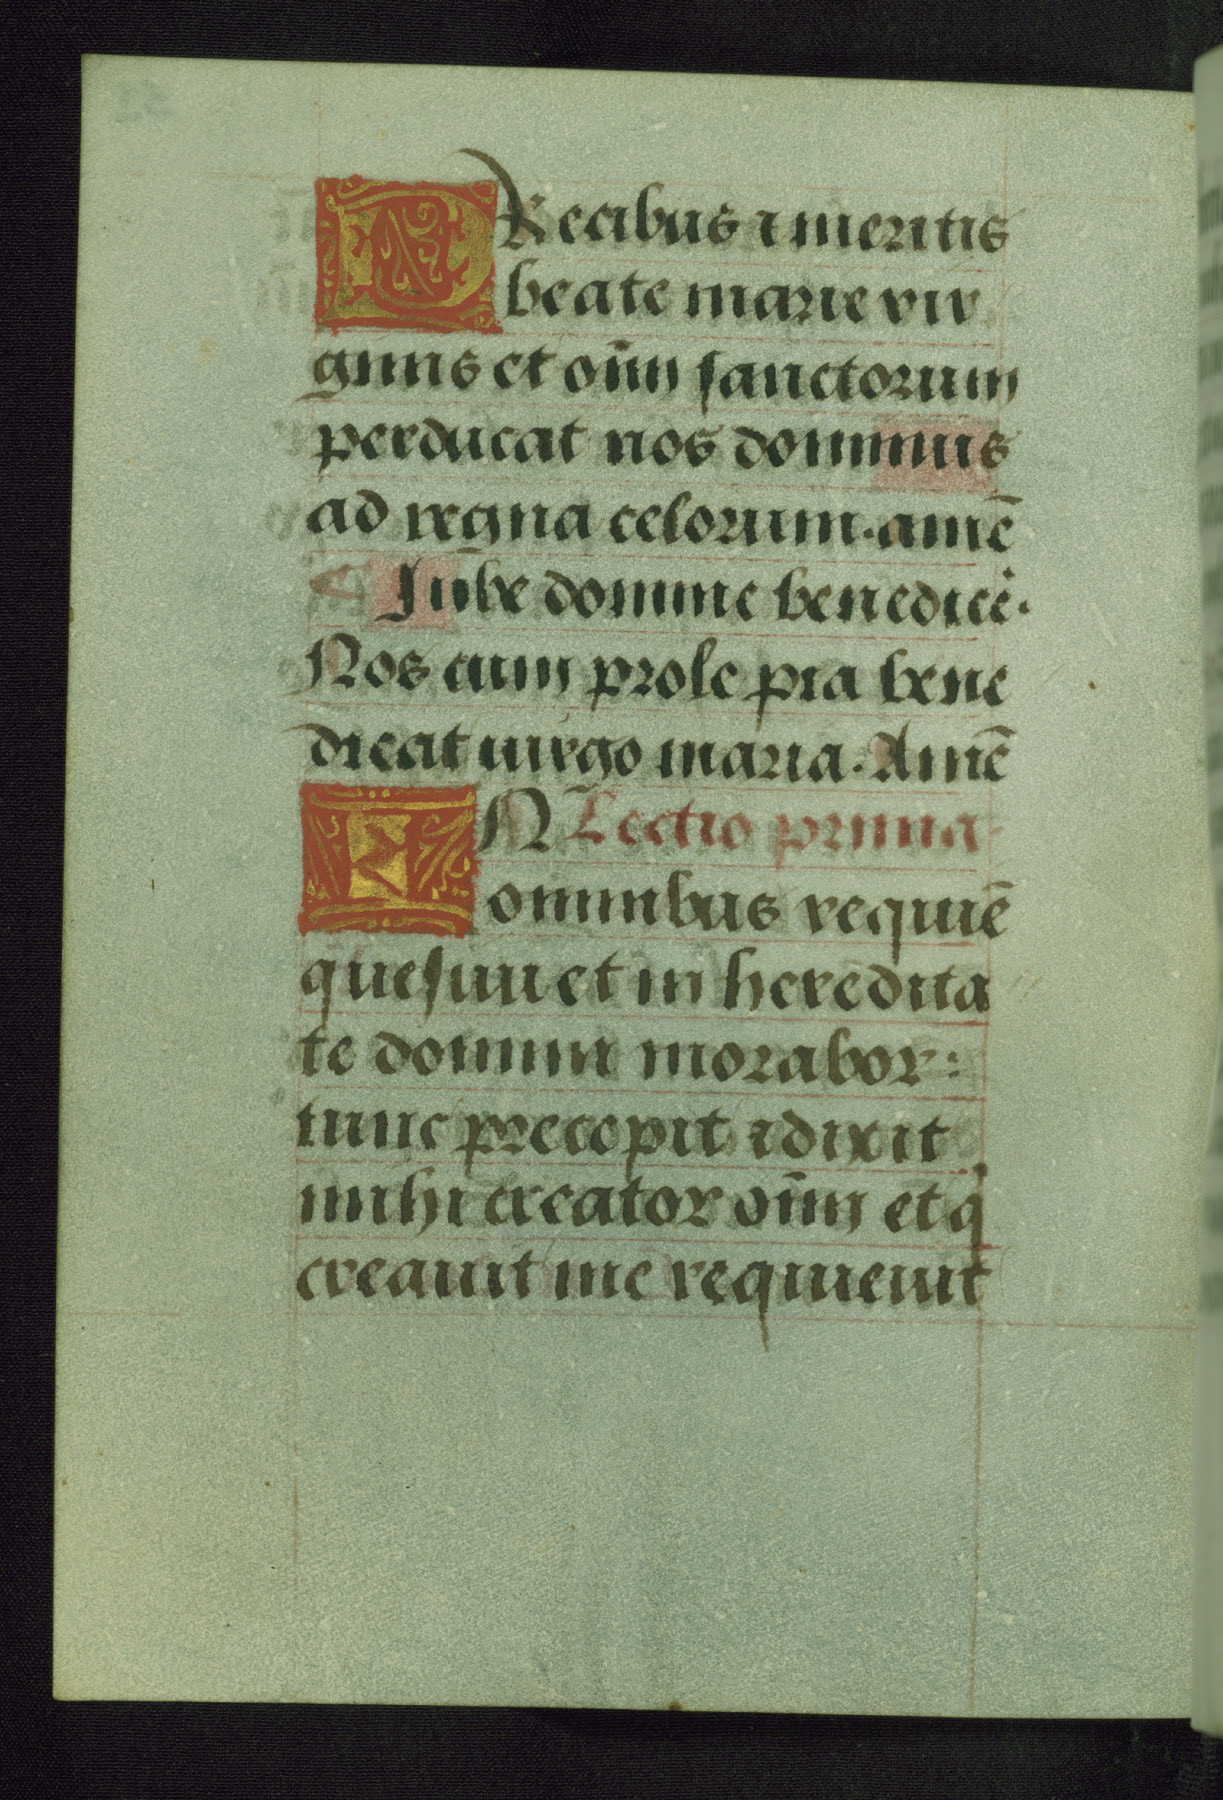 PRecibus ⁊ meritis
beate marie vir
ginis et oīm sanctorum
perducat nos dominus
ad regna celorum. amē
Iube domine benedicē.
Nos cum prole pia bene
dicat virgo maria. Amē
IN Lectio prima
omnibus requiē
quesiui et in heredita
te domini morabor:
tunc precepit ⁊ dixit
mihi creator oīm et q̇
creauit me requieuit